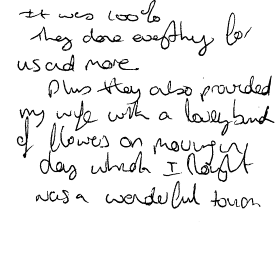 It was 100%
They done everything for
us and more.
Plus they also provided
my wife with a lovely bunch
of flowers on moving in
day which I thought
was a wonderful touch